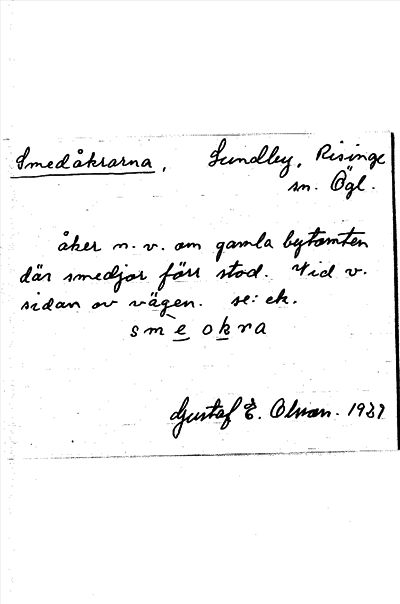 Smedåkrarna, Lundby, Risinge
sn. Ögl.
åker n. v. om gamla bytomten
där smedjor förr stod. Vid v.
sidan av vägen. se: ek.
smè okra
Gustaf E. Olsson. 1937